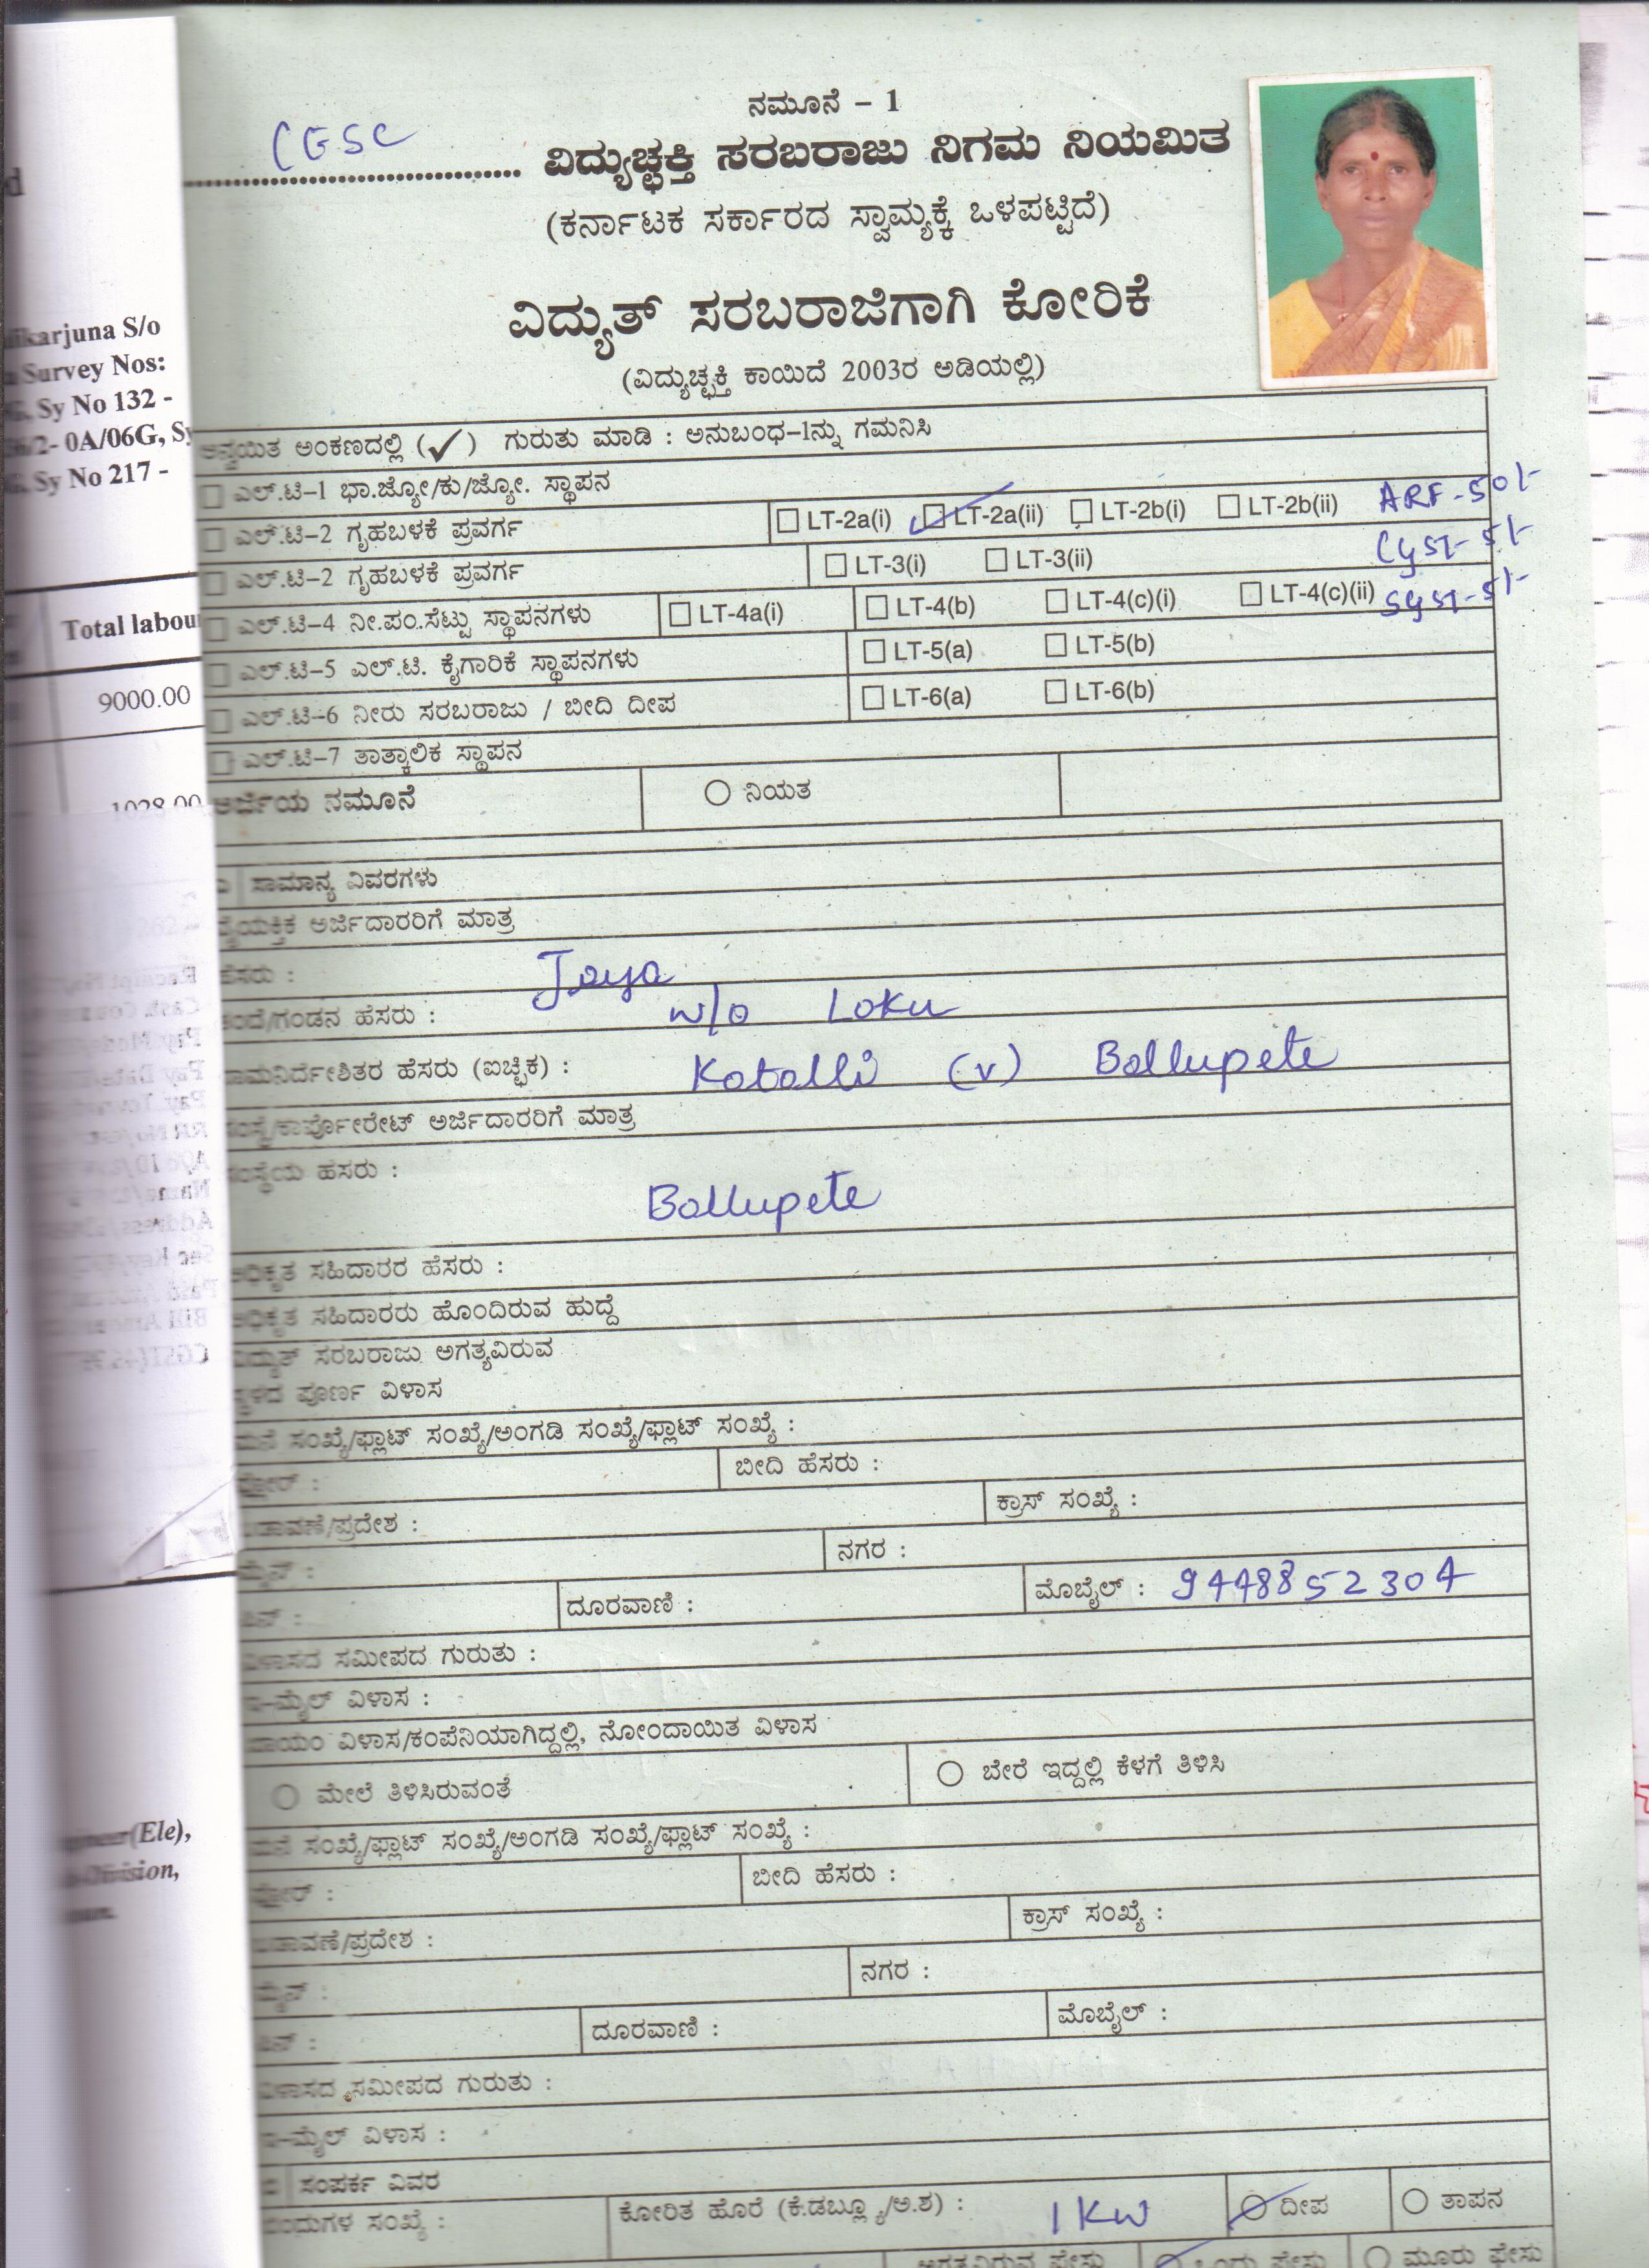 ನಮೂನೆ – 1
CESC
.................................... ವಿದ್ಯುಚ್ಛಕ್ತಿ ಸರಬರಾಜು ನಿಗಮ ನಿಯಮಿತ
(ಕರ್ನಾಟಕ ಸರ್ಕಾರದ ಸ್ವಾಮ್ಯಕ್ಕೆ ಒಳಪಟ್ಟಿದೆ)
ವಿದ್ಯುತ್ ಸರಬರಾಜಿಗಾಗಿ ಕೋರಿಕೆ
(ವಿದ್ಯುಚ್ಛಕ್ತಿ ಕಾಯಿದೆ 2003ರ ಅಡಿಯಲ್ಲಿ)
ಅನ್ವಯಿತ ಅಂಕಣದಲ್ಲಿ (✓) ಗುರುತು ಮಾಡಿ : ಅನುಬಂಧ–1ನ್ನು ಗಮನಿಸಿ
ಎಲ್.ಟಿ–1 ಭಾ.ಜ್ಯೋ/ಕು/ಜ್ಯೋ. ಸ್ಥಾಪನ
ಎಲ್.ಟಿ–2 ಗೃಹಬಳಕೆ ಪ್ರವರ್ಗ LT-2a(i) LT-2a(ii) LT-2b(i) LT-2b(ii) ARF-50/-
ಎಲ್.ಟಿ–2 ಗೃಹಬಳಕೆ ಪ್ರವರ್ಗ LT-3(i) LT-3(ii) CGST-5/-
ಎಲ್.ಟಿ–4 ನೀ.ಪಂ.ಸೆಟ್ಟು ಸ್ಥಾಪನಗಳು LT-4a(i) LT-4(b) LT-4(c)(i) LT-4(c)(ii) SGST-5/-
ಎಲ್.ಟಿ–5 ಎಲ್.ಟಿ. ಕೈಗಾರಿಕೆ ಸ್ಥಾಪನಗಳು LT-5(a) LT-5(b)
ಎಲ್.ಟಿ–6 ನೀರು ಸರಬರಾಜು / ಬೀದಿ ದೀಪ LT-6(a) LT-6(b)
ಎಲ್.ಟಿ–7 ತಾತ್ಕಾಲಿಕ ಸ್ಥಾಪನ
ಅರ್ಜಿಯ ನಮೂನೆ ನಿಯತ
ಸಾಮಾನ್ಯ ವಿವರಗಳು
ವೈಯಕ್ತಿಕ ಅರ್ಜಿದಾರರಿಗೆ ಮಾತ್ರ
ಹೆಸರು : Jaya
ತಂದೆ/ಗಂಡನ ಹೆಸರು : w/o Loku
ನಾಮನಿರ್ದೇಶಿತರ ಹೆಸರು (ಐಚ್ಛಿಕ) : Kotalli (v) Ballupete
ಸಂಸ್ಥೆ/ಕಾರ್ಪೋರೇಟ್ ಅರ್ಜಿದಾರರಿಗೆ ಮಾತ್ರ
ಸಂಸ್ಥೆಯ ಹೆಸರು : Ballupete
ಅಧಿಕೃತ ಸಹಿದಾರರ ಹೆಸರು :
ಅಧಿಕೃತ ಸಹಿದಾರರು ಹೊಂದಿರುವ ಹುದ್ದೆ
ವಿದ್ಯುತ್ ಸರಬರಾಜು ಅಗತ್ಯವಿರುವ
ಸ್ಥಳದ ಪೂರ್ಣ ವಿಳಾಸ
ಮನೆ ಸಂಖ್ಯೆ/ಫ್ಲಾಟ್ ಸಂಖ್ಯೆ/ಅಂಗಡಿ ಸಂಖ್ಯೆ/ಫ್ಲಾಟ್ ಸಂಖ್ಯೆ :
ಫ್ಲೋರ್ : ಬೀದಿ ಹೆಸರು :
ಬಡಾವಣೆ/ಪ್ರದೇಶ : ಕ್ರಾಸ್ ಸಂಖ್ಯೆ :
ಮೈನ್ : ನಗರ :
ಪಿನ್ : ದೂರವಾಣಿ : ಮೊಬೈಲ್ : 9448852304
ವಿಳಾಸದ ಸಮೀಪದ ಗುರುತು :
ಇ–ಮೈಲ್ ವಿಳಾಸ :
ಖಾಯಂ ವಿಳಾಸ/ಕಂಪೆನಿಯಾಗಿದ್ದಲ್ಲಿ, ನೋಂದಾಯಿತ ವಿಳಾಸ
ಮೇಲೆ ತಿಳಿಸಿರುವಂತೆ ಬೇರೆ ಇದ್ದಲ್ಲಿ ಕೆಳಗೆ ತಿಳಿಸಿ
ಮನೆ ಸಂಖ್ಯೆ/ಫ್ಲಾಟ್ ಸಂಖ್ಯೆ/ಅಂಗಡಿ ಸಂಖ್ಯೆ/ಫ್ಲಾಟ್ ಸಂಖ್ಯೆ :
ಫ್ಲೋರ್ : ಬೀದಿ ಹೆಸರು :
ಬಡಾವಣೆ/ಪ್ರದೇಶ : ಕ್ರಾಸ್ ಸಂಖ್ಯೆ :
ಮೈನ್ : ನಗರ :
ಪಿನ್ : ದೂರವಾಣಿ : ಮೊಬೈಲ್ :
ವಿಳಾಸದ ಸಮೀಪದ ಗುರುತು :
ಇ–ಮೈಲ್ ವಿಳಾಸ :
ಸಂಪರ್ಕ ವಿವರ
ಬಿಂದುಗಳ ಸಂಖ್ಯೆ : ಕೋರಿತ ಹೊರೆ (ಕೆ.ಡಬ್ಲ್ಯೂ/ಅ.ಶ) : 1 KW ದೀಪ ತಾಪನ
ಅಗತ್ಯವಿರುವ ಫೇಸು ಒಂದು ಫೇಸು ಮೂರು ಫೇಸು
likarjuna S/o
Survey Nos:
Sy No 132 -
0A/06G, Sy
Sy No 217 -
Total labou
9000.00
1028.00
(Ele),
Division,